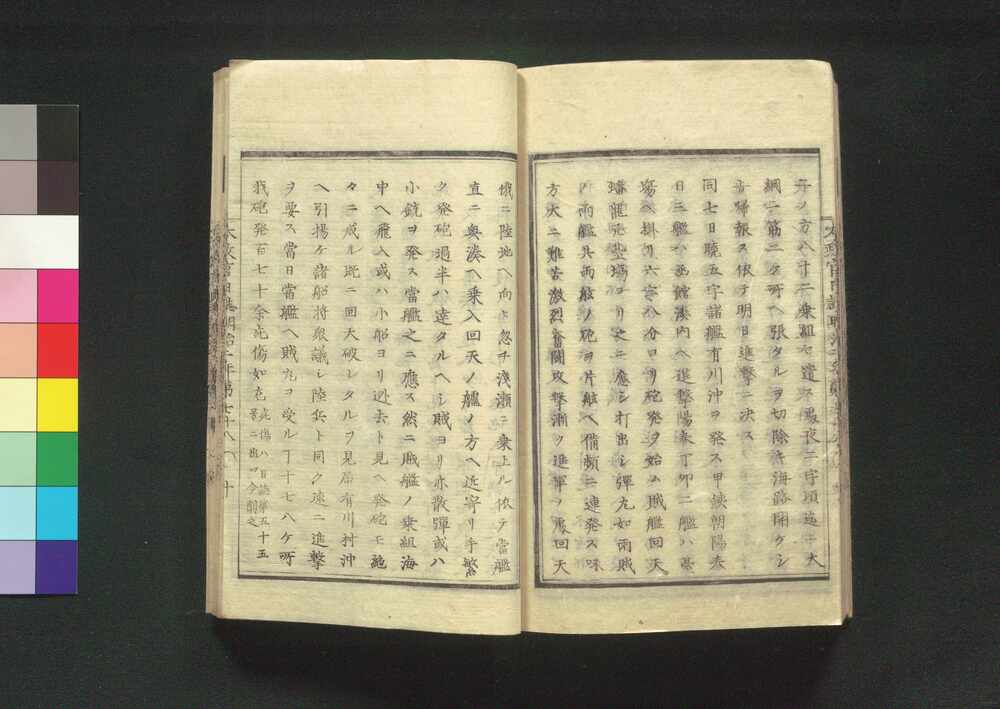 弁ノ方ヘ十二乗組セ遣ス夜二字頃迄ニ大
綱二筋ニケ所ヘ張タルヲ切除ケ海路開ケシ
旨帰報ス依テ明日進撃ニ決ス
同七日暁五字諸艦有川沖ヲ発ス甲鉄朝陽春
日三艦ハ函館湊内ヘ進撃陽春丁卯二艦ハ臺
場ヘ掛リ六字八分ヨリ砲発ヲ始ム賊艦回天
蟠龍弁臺場ヨリ之ニ應シ打出シ弾丸如雨賊
両艦共両舷ノ砲ヲ片舷ヘ備頻ニ連発ス味
方大ニ難苦激烈奮闘攻撃漸ク進軍ヲ回天
俄ニ陸地ヘ向ヒ忽チ浅瀬ニ乗上ル依テ當艦
直ニ奥湊ヘ乗入回天ノ艫ノ方ヘ近寄リ手繁
ク発砲過半ハ達タルヘシ賊ヨリ亦散弾或ハ
小銃ヲ発ス當艦之ニ應ス然ニ賊艦ノ乗組海
中ヘ飛入或ハ小船ヨリ逃去ト見ヘ発砲モ絶
々ニ成ル既ニ回天破レタルヲ見届有川村沖
ヘ引揚ケ諸船将衆議シ陸兵ト同ク速ニ進撃
ヲ要ス當日當艦ヘ賊丸ヲ受ル丁十七八ケ所
我砲発百七十余死傷如左 死傷ハ日誌第五十五号ニ出ツ今削之
太政官日誌明治二年第七十八 十